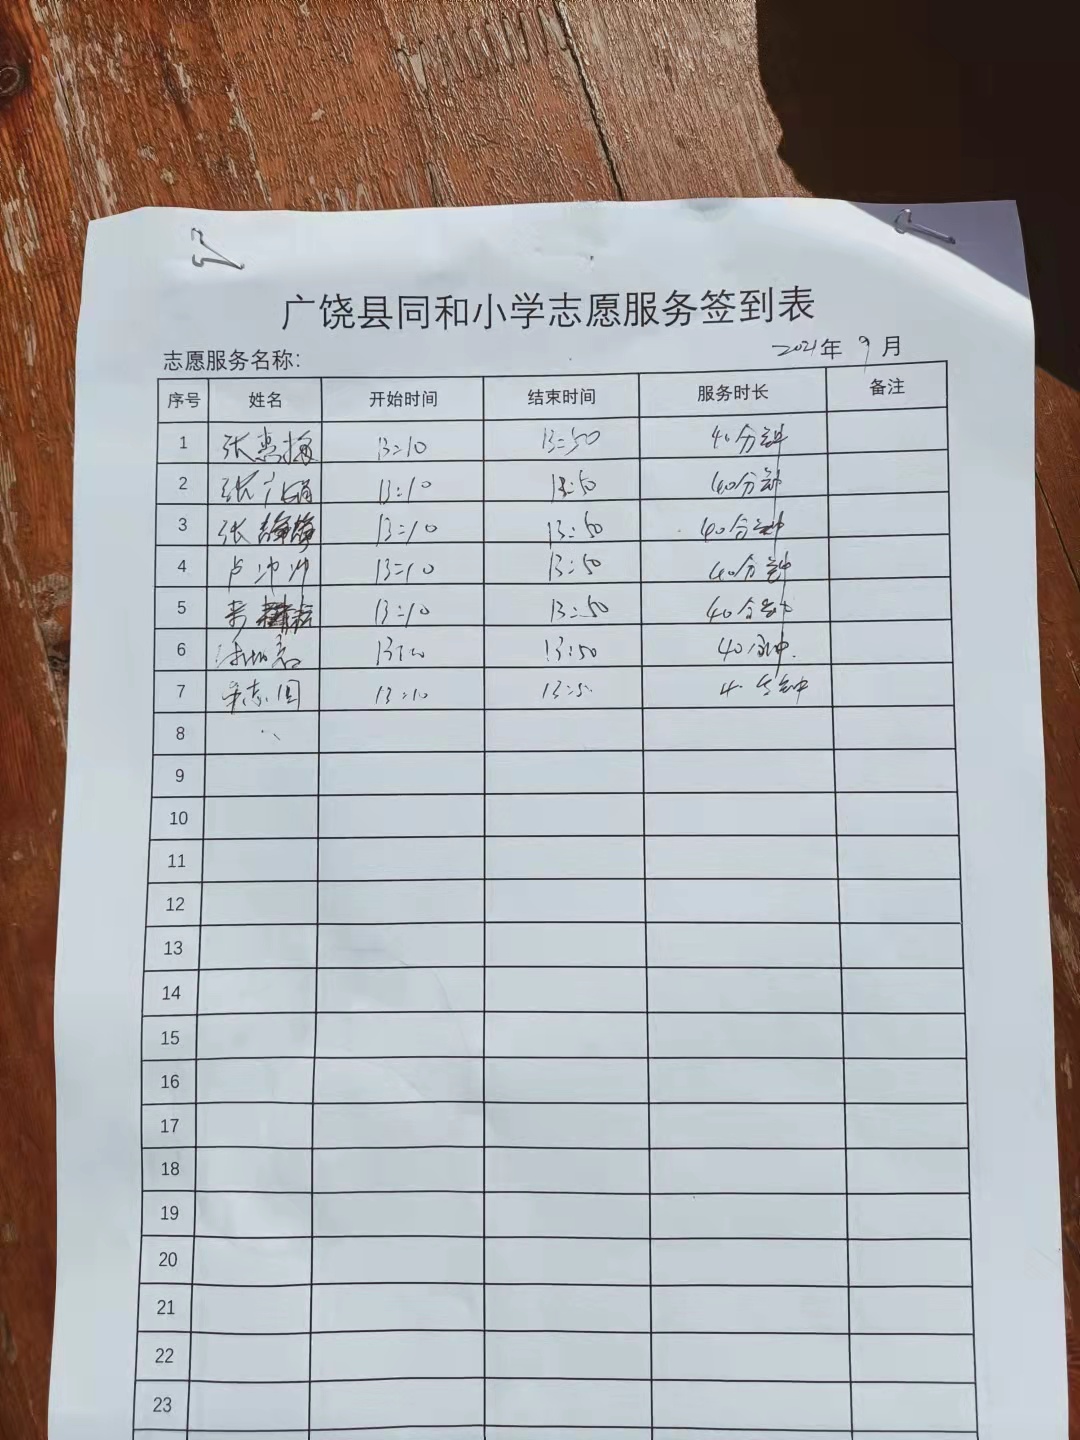 广饶县同和小学志愿服务签到表
志愿服务名称:
2021年 9月
序号 姓名 开始时间 结束时间 服务时长 备注
1 张惠梅 13:10 13:50 40分钟
2 张 13:10 13:50 40分钟
3 张静静 13:10 13:50 40分钟
4 卢帅帅 13:10 13:50 40分钟
5 13:10 13:50 40分钟
6 13:10 13:50 40分钟
7 13:10 13:50 40分钟
8
9
10
11
12
13
14
15
16
17
18
19
20
21
22
23